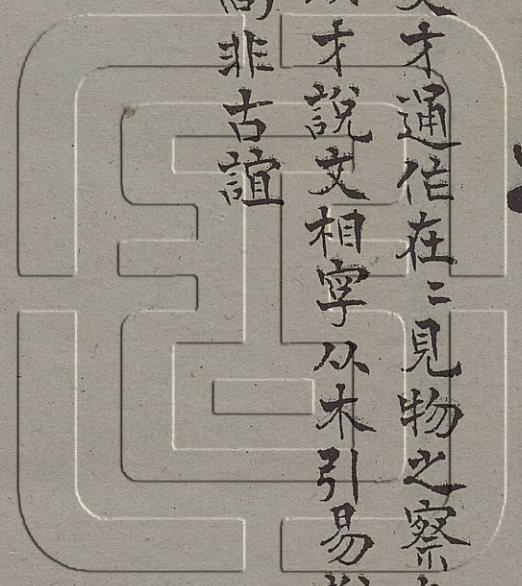 才通作在〻見物之察
才說文相从木引易
非古誼